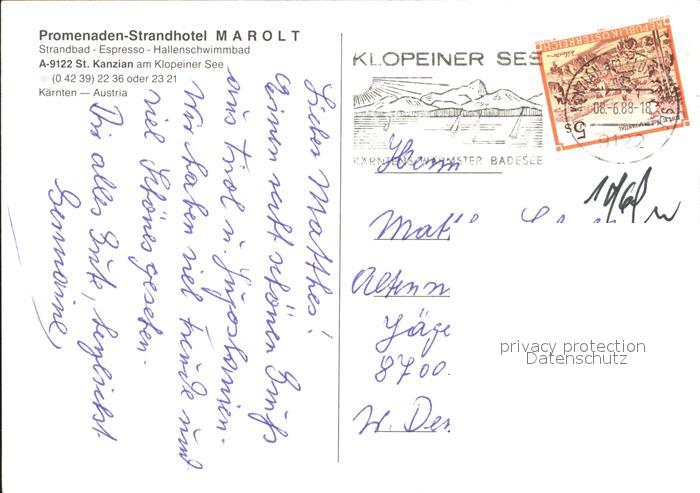 Promenaden-Strandhotel MAROLT
Strandbad - Espresso - Hallenschwimmbad
A-9122 St. Kanzian am Klopeiner See
(0 42 39) 22 36 oder 23 21
Kärnten — Austria
Lieber Matthes!
Einen recht schönen Gruß
aus Tirol u. Jugoslawien.
Wir haben viel Freude und
viel Schönes gesehen.
Dir alles Gute, herzlichst
Germaine
KLOPEINER SEE
KÄRNTENS WÄRMSTER BADESEE
REPUBLIK ÖSTERREICH
5s
08.-6.88-18
9122
Herrn
Mat
Jäge
8700
W. De
privacy protection
Datenschutz